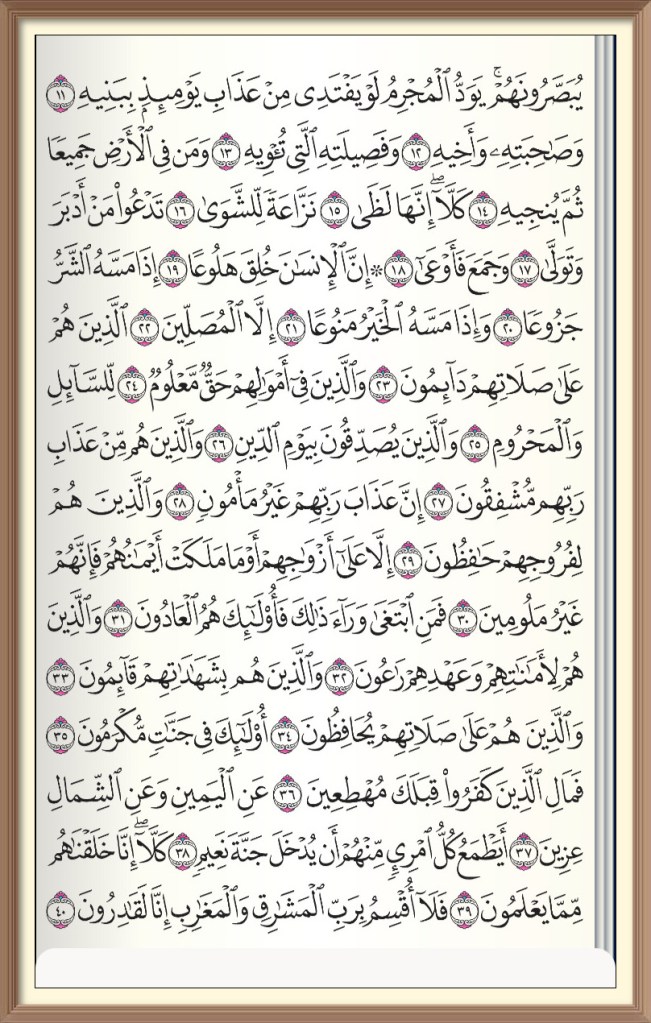 يُبَصَّرُونَهُمْۚ يَوَدُّ ٱلْمُجْرِمُ لَوْ يَفْتَدِى مِنْ عَذَابِ يَوْمِئِذٍۭ بِبَنِيهِ ١١
وَصَٰحِبَتِهِۦ وَأَخِيهِ ١٢ وَفَصِيلَتِهِ ٱلَّتِى تُـْٔوِيهِ ١٣ وَمَن فِى ٱلْأَرْضِ جَمِيعًا
ثُمَّ يُنجِيهِ ١٤ كَلَّآۖ إِنَّهَا لَظَىٰ ١٥ نَزَّاعَةً لِّلشَّوَىٰ ١٦ تَدْعُوا۟ مَنْ أَدْبَرَ
وَتَوَلَّىٰ ١٧ وَجَمَعَ فَأَوْعَىٰٓ ١٨ ۞ إِنَّ ٱلْإِنسَٰنَ خُلِقَ هَلُوعًا ١٩ إِذَا مَسَّهُ ٱلشَّرُّ
جَزُوعًا ٢٠ وَإِذَا مَسَّهُ ٱلْخَيْرُ مَنُوعًا ٢١ إِلَّا ٱلْمُصَلِّينَ ٢٢ ٱلَّذِينَ هُمْ
عَلَىٰ صَلَاتِهِمْ دَآئِمُونَ ٢٣ وَٱلَّذِينَ فِىٓ أَمْوَٰلِهِمْ حَقٌّ مَّعْلُومٌ ٢٤ لِّلسَّآئِلِ
وَٱلْمَحْرُومِ ٢٥ وَٱلَّذِينَ يُصَدِّقُونَ بِيَوْمِ ٱلدِّينِ ٢٦ وَٱلَّذِينَ هُم مِّنْ عَذَابِ
رَبِّهِم مُّشْفِقُونَ ٢٧ إِنَّ عَذَابَ رَبِّهِمْ غَيْرُ مَأْمُونٍ ٢٨ وَٱلَّذِينَ هُمْ
لِفُرُوجِهِمْ حَٰفِظُونَ ٢٩ إِلَّا عَلَىٰٓ أَزْوَٰجِهِمْ أَوْ مَا مَلَكَتْ أَيْمَٰنُهُمْ فَإِنَّهُمْ
غَيْرُ مَلُومِينَ ٣٠ فَمَنِ ٱبْتَغَىٰ وَرَآءَ ذَٰلِكَ فَأُو۟لَٰٓئِكَ هُمُ ٱلْعَادُونَ ٣١ وَٱلَّذِينَ
هُمْ لِأَمَٰنَٰتِهِمْ وَعَهْدِهِمْ رَٰعُونَ ٣٢ وَٱلَّذِينَ هُم بِشَهَٰدَٰتِهِمْ قَآئِمُونَ ٣٣
وَٱلَّذِينَ هُمْ عَلَىٰ صَلَاتِهِمْ يُحَافِظُونَ ٣٤ أُو۟لَٰٓئِكَ فِى جَنَّٰتٍ مُّكْرَمُونَ ٣٥
فَمَالِ ٱلَّذِينَ كَفَرُوا۟ قِبَلَكَ مُهْطِعِينَ ٣٦ عَنِ ٱلْيَمِينِ وَعَنِ ٱلشِّمَالِ
عِزِينَ ٣٧ أَيَطْمَعُ كُلُّ ٱمْرِئٍ مِّنْهُمْ أَن يُدْخَلَ جَنَّةَ نَعِيمٍ ٣٨ كَلَّآۖ إِنَّا خَلَقْنَٰهُم
مِّمَّا يَعْلَمُونَ ٣٩ فَلَآ أُقْسِمُ بِرَبِّ ٱلْمَشَٰرِقِ وَٱلْمَغَٰرِبِ إِنَّا لَقَٰدِرُونَ ٤٠